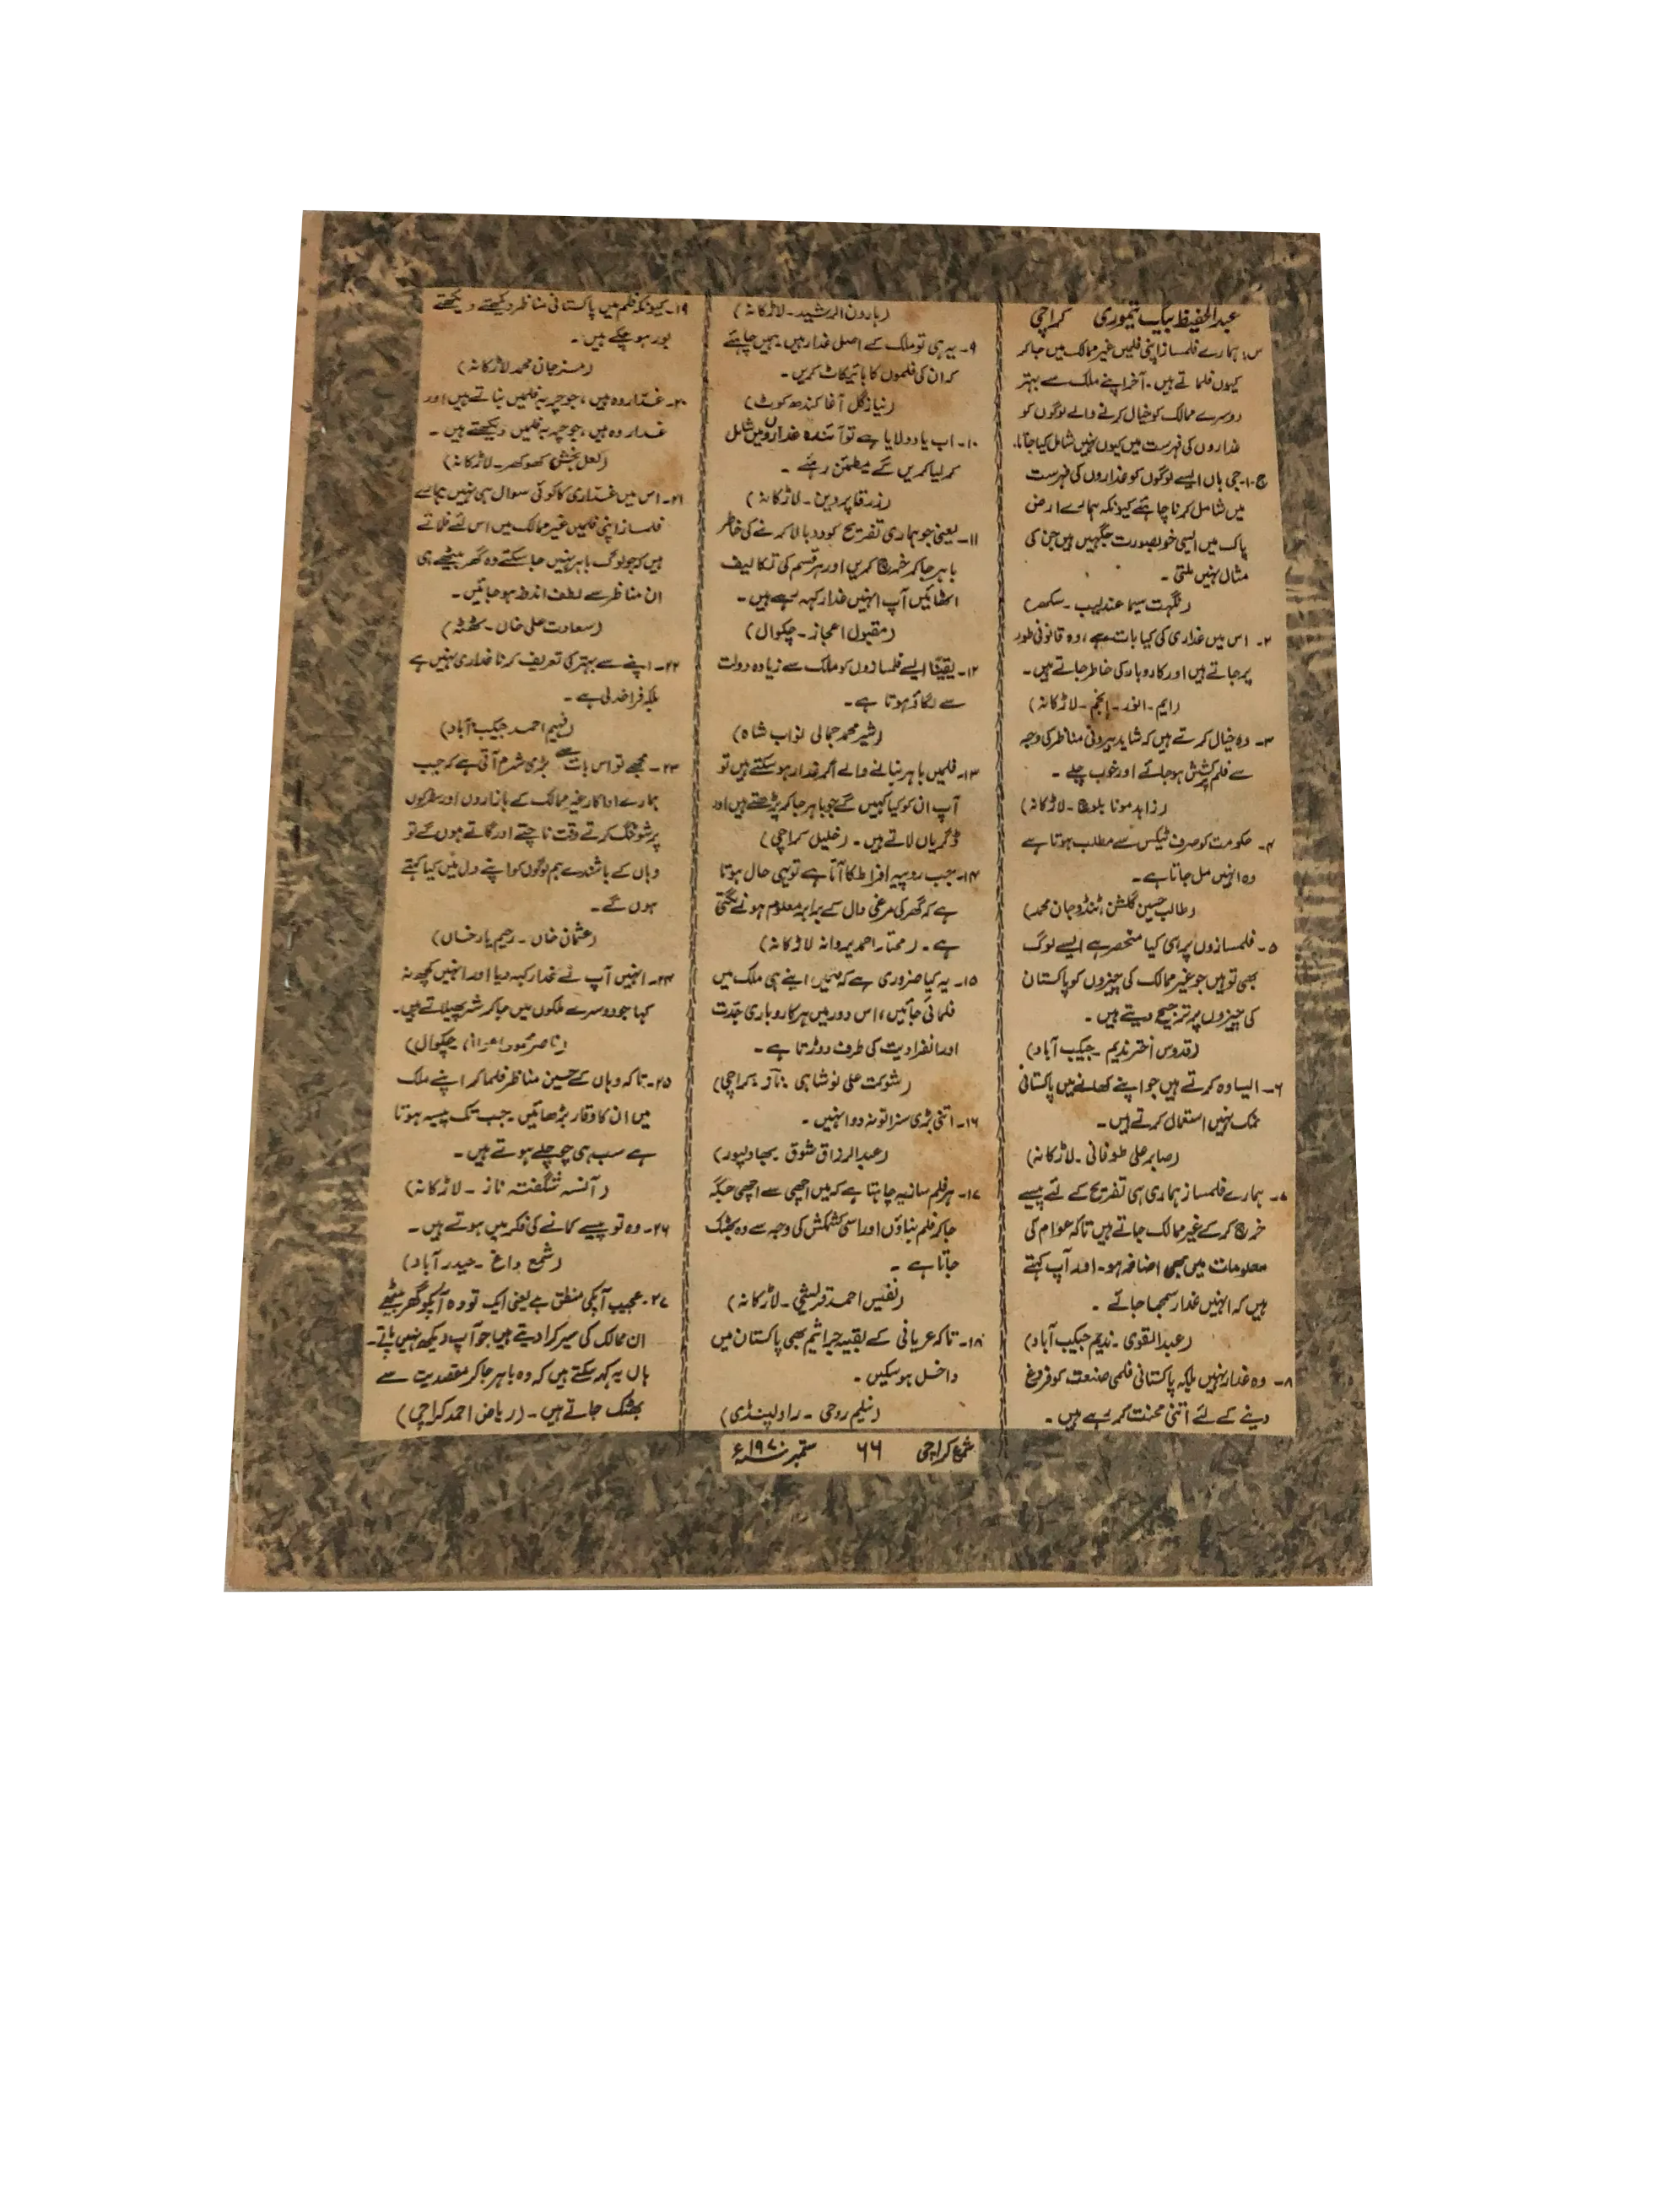 عبدالحفیظ بیگ تیموری کراچی
س: ہمارے فلمساز اپنی فلمیں غیر ممالک میں جا کر
کیوں فلماتے ہیں۔ آخر اپنے ملک سے بہتر
دوسرے ممالک کو خیال کرنے والے لوگوں کو
غداروں کی فہرست میں کیوں نہیں شامل کیا جاتا۔
ج۔۱۔ جی ہاں ایسے لوگوں کو غداروں کی فہرست
میں شامل کرنا چاہئے کیونکہ ہمارے ارض
پاک میں ایسی خوبصورت جگہیں ہیں جن کی
مثال نہیں ملتی۔
(نگہت سیما عندلیب۔ سکھر)
۲۔ اس میں غداری کی کیا بات ہے، وہ قانونی طور
پر جاتے ہیں اور کاروبار کی خاطر جاتے ہیں۔
(ایم۔ انور۔ انجم۔ لاڑکانہ)
۳۔ وہ خیال کرتے ہیں کہ شاید بیرونی مناظر کی وجہ
سے فلم پرکشش ہو جائے اور خوب چلے۔
(زاہد مونا بلوچ۔ لاڑکانہ)
۴۔ حکومت کو صرف ٹیکس سے مطلب ہوتا ہے
وہ انہیں مل جاتا ہے۔
(طالب حسین گلشن، ٹنڈو جان محمد)
۵۔ فلمسازوں پر ہی کیا منحصر ہے ایسے لوگ
بھی تو ہیں جو غیر ممالک کی چیزوں کو پاکستان
کی چیزوں پر ترجیح دیتے ہیں۔
(قدوس اختر ندیم۔ جیکب آباد)
۶۔ ایسا وہ کرتے ہیں جو اپنے کھانے میں پاکستانی
نمک نہیں استعمال کرتے ہیں۔
(صابر علی طوفانی۔ لاڑکانہ)
۷۔ ہمارے فلمساز ہماری ہی تفریح کے لئے پیسے
خرچ کر کے غیر ممالک جاتے ہیں تاکہ عوام کی
معلومات میں بھی اضافہ ہو۔ اور آپ کہتے
ہیں کہ انہیں غدار سمجھا جائے۔
(عبدالقوی۔ ندیم جیکب آباد)
۸۔ وہ غدار نہیں بلکہ پاکستانی فلمی صنعت کو فروغ
دینے کے لئے اتنی محنت کر رہے ہیں۔
(ہارون الرشید۔ لاڑکانہ)
۹۔ یہ ہی تو ملک کے اصل غدار ہیں۔ ہمیں چاہئے
کہ ان کی فلموں کا بائیکاٹ کریں۔
(نیاز گل آغا کندھ کوٹ)
۱۰۔ اب یاد دلایا ہے تو آئندہ غداروں میں شامل
کر لیا کریں گے مطمئن رہئے۔
(زرقا پروین۔ لاڑکانہ)
۱۱۔ یعنی جو ہماری تفریح کو دوبالا کرنے کی خاطر
باہر جا کر خرچ کریں اور ہر قسم کی تکالیف
اٹھائیں آپ انہیں غدار کہہ رہے ہیں۔
(مقبول اعجاز۔ چکوال)
۱۲۔ یقیناً ایسے فلمسازوں کو ملک سے زیادہ دولت
سے لگاؤ ہوتا ہے۔
(شیر محمد جمالی نواب شاہ)
۱۳۔ فلمیں باہر بنانے والے اگر غدار ہو سکتے ہیں تو
آپ ان کو کیا کہیں گے جو باہر جا کر پڑھتے ہیں اور
ڈگریاں لاتے ہیں۔ (خلیل کراچی)
۱۴۔ جب روپیہ افراط کا آتا ہے تو یہی حال ہوتا
ہے کہ گھر کی مرغی دال کے برابر معلوم ہونے لگتی
ہے۔ (مختار احمد پروانہ لاڑکانہ)
۱۵۔ یہ کیا ضروری ہے کہ فلمیں اپنے ہی ملک میں
فلمائی جائیں، اس دور میں ہر کاروباری جدت
اور انفرادیت کی طرف دوڑتا ہے۔
(شوکت علی نوشاہی ناز۔ کراچی)
۱۶۔ اتنی بڑی سزا تو نہ دو انہیں۔
(عبدالرزاق شوق۔ بھاولپور)
۱۷۔ ہر فلم ساز یہ چاہتا ہے کہ میں اچھی سے اچھی جگہ
جا کر فلم بناؤں اور اسی کشمکش کی وجہ سے وہ بھٹک
جاتا ہے۔
(نفیس احمد قریشی۔ لاڑکانہ)
۱۸۔ تاکہ عریانی کے بقیہ جراثیم بھی پاکستان میں
داخل ہو سکیں۔
(نیلم روحی۔ راولپنڈی)
۱۹۔ کیونکہ فلم میں پاکستانی مناظر دیکھتے دیکھتے
بور ہو چکے ہیں۔
(مسز جان محمد لاڑکانہ)
۲۰۔ غدار وہ ہیں، جو چربہ فلمیں بناتے ہیں اور
غدار وہ ہیں، جو چربہ فلمیں دیکھتے ہیں۔
(لعل بخش کھوکھر۔ لاڑکانہ)
۲۱۔ اس میں غداری کا کوئی سوال ہی نہیں ہمارے
فلمساز اپنی فلمیں غیر ممالک میں اس لئے فلماتے
ہیں کہ جو لوگ باہر نہیں جا سکتے وہ گھر بیٹھے ہی
ان مناظر سے لطف اندوز ہو جائیں۔
(سعادت علی خاں۔ ٹھٹھہ)
۲۲۔ اپنے سے بہتر کی تعریف کرنا غداری نہیں ہے
بلکہ فراخدلی ہے۔
(فہیم احمد جیکب آباد)
۲۳۔ مجھے تو اس بات سے بڑی شرم آتی ہے کہ جب
ہمارے اداکار غیر ممالک کے بازاروں اور سڑکوں
پر شوٹنگ کرتے وقت ناچتے اور گاتے ہوں گے تو
وہاں کے باشندے ہم لوگوں کو اپنے دل میں کیا کہتے
ہوں گے۔
(عثمان خاں۔ رحیم یار خاں)
۲۴۔ انہیں آپ نے غدار کہہ دیا اور انہیں کچھ نہ
کہا جو دوسرے ملکوں میں جا کر شر پھیلاتے ہیں۔
(ناصر محمود اعوان، چکوال)
۲۵۔ تاکہ وہاں کے حسین مناظر فلما کر اپنے ملک
میں ان کا وقار بڑھائیں۔ جب تک پیسہ ہوتا
ہے سب ہی چوچلے ہوتے ہیں۔
(آنسہ شگفتہ ناز۔ لاڑکانہ)
۲۶۔ وہ تو پیسے کمانے کی فکر میں ہوتے ہیں۔
(شمع داغ۔ حیدرآباد)
۲۷۔ عجیب آپکی منطق ہے یعنی ایک تو وہ آپکو گھر بیٹھے
ان ممالک کی سیر کرا دیتے ہیں جو آپ دیکھ نہیں پاتے۔
ہاں یہ کہہ سکتے ہیں کہ وہ باہر جا کر مقصدیت سے
بھٹک جاتے ہیں۔ (ریاض احمد کراچی)
شمع کراچی ۶۶ ستمبر ۱۹۷۰ء